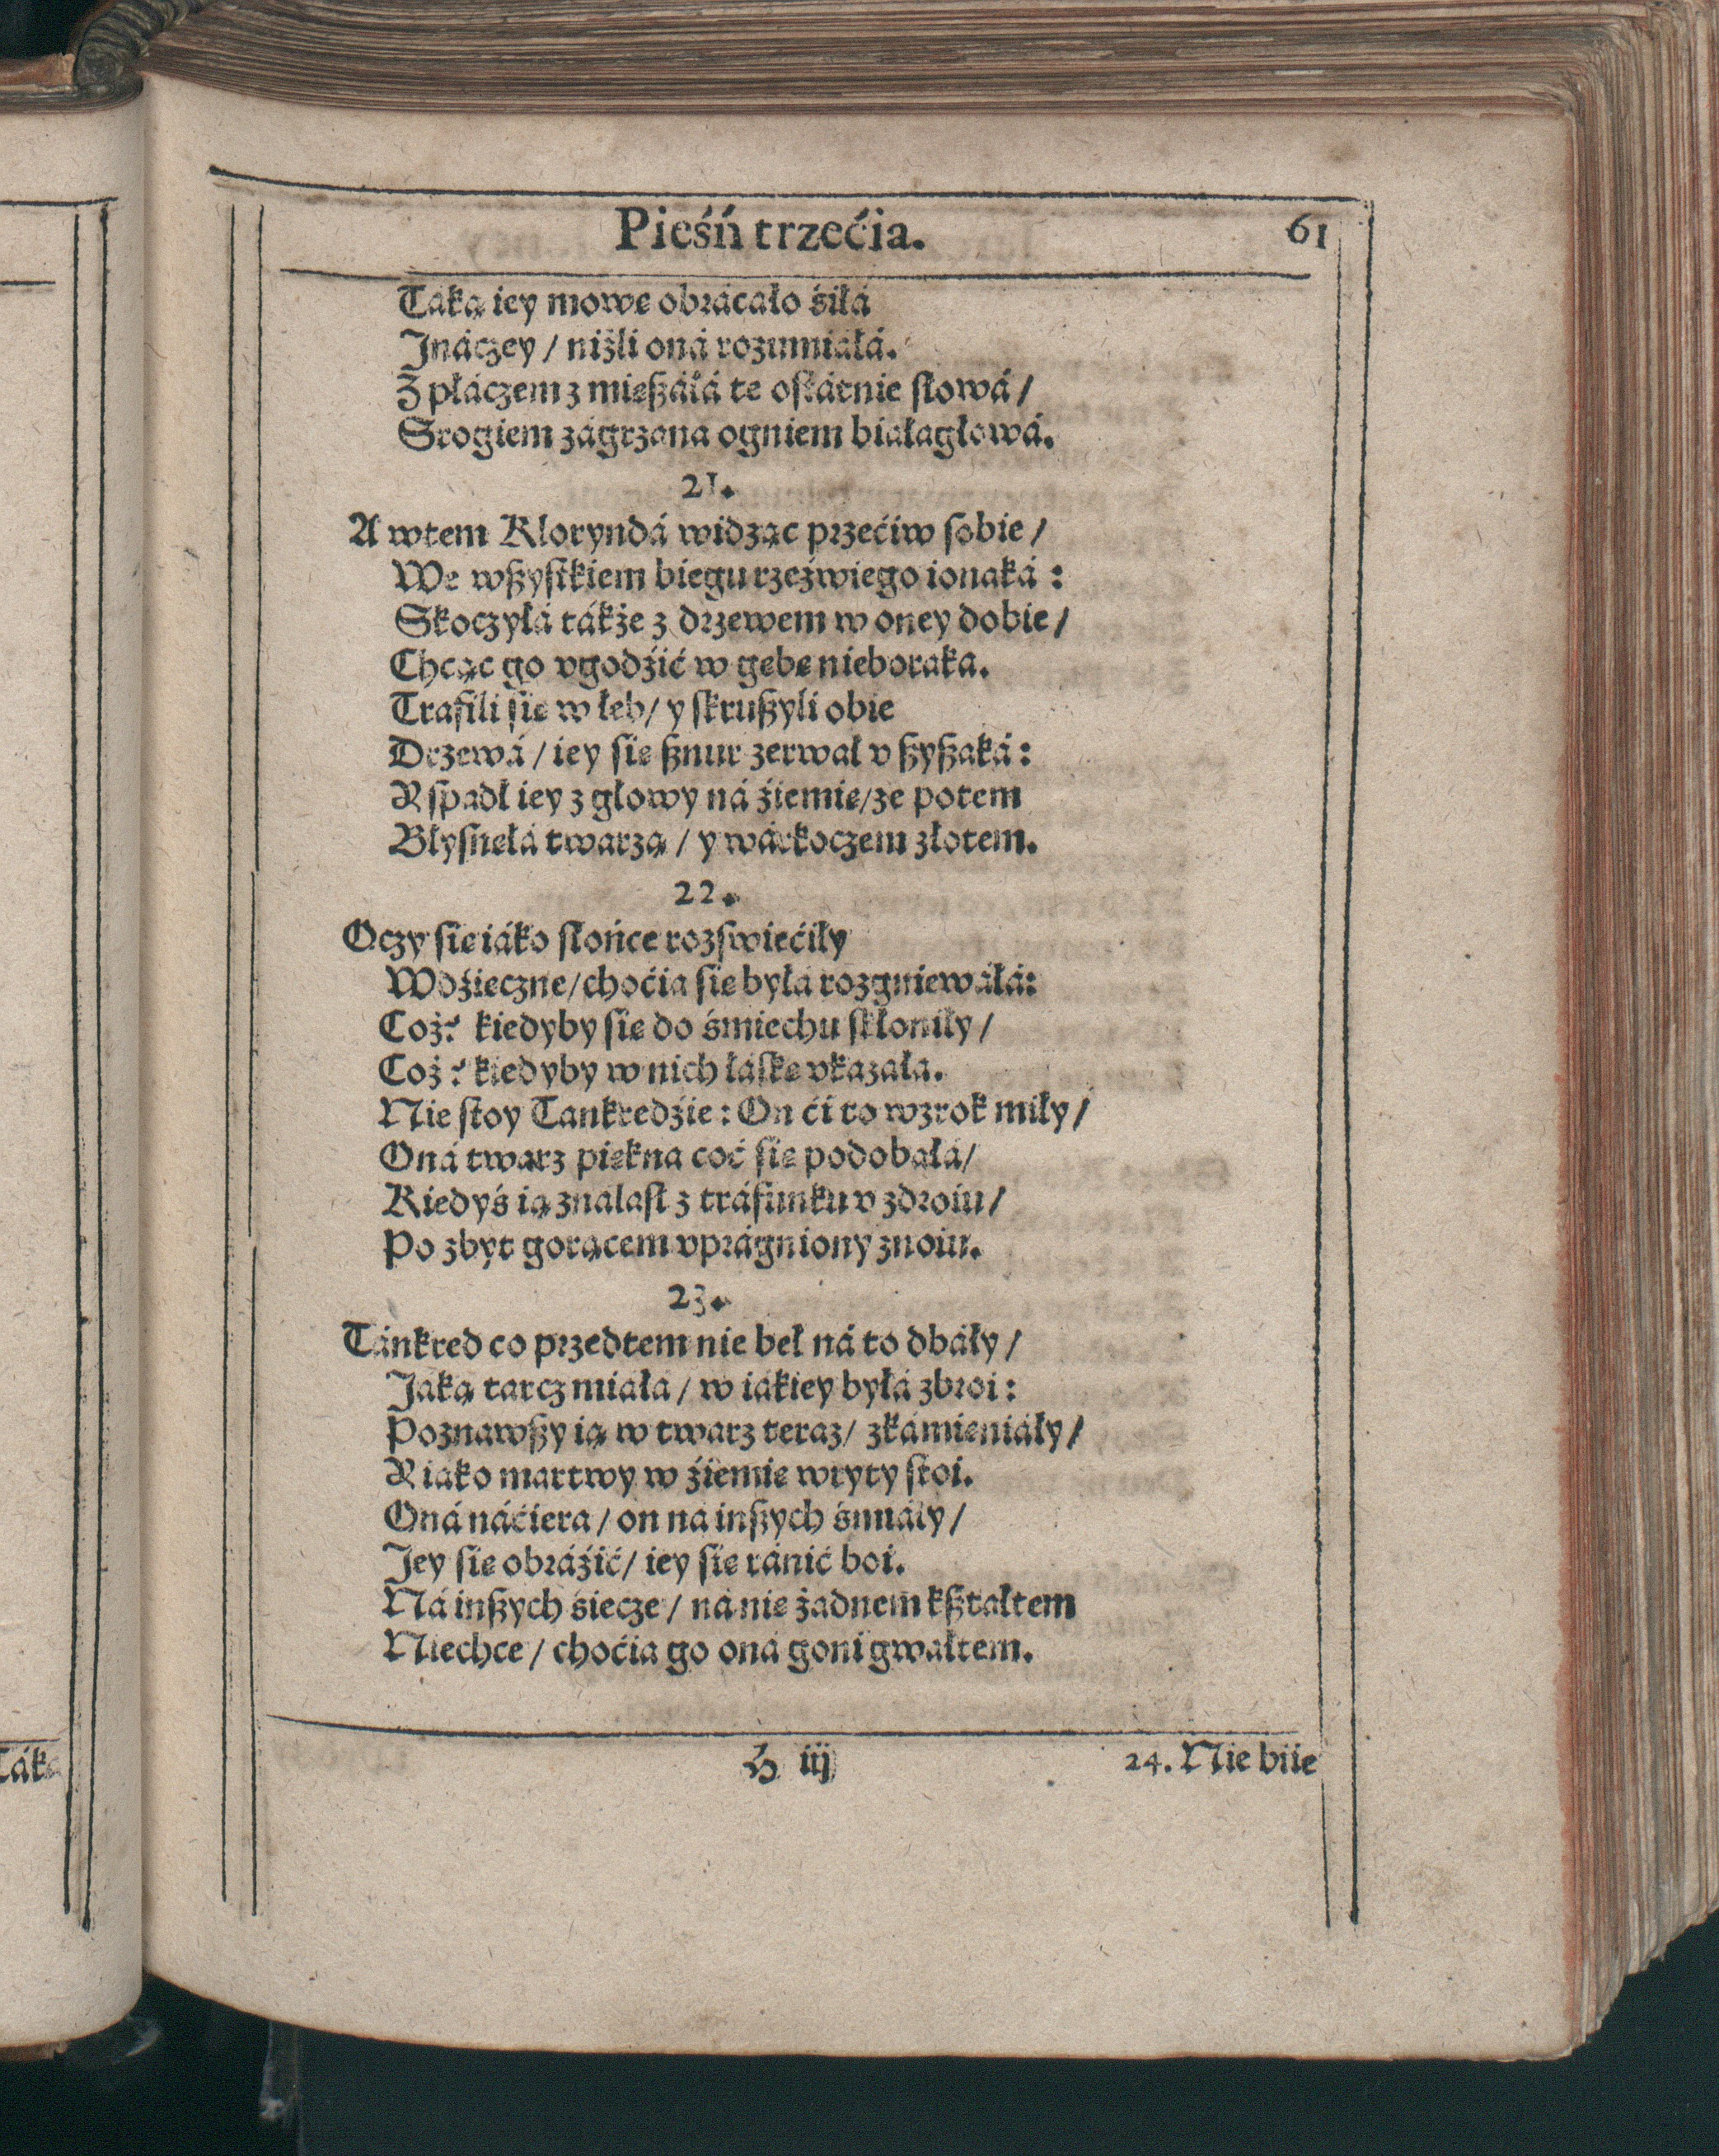 Pieśń trzećia.
61
Táką iey mowę obrácáło śiłá
Jnáczey / niżli oná rozumiáłá.
Z płáczem z mięßáłá te ostátnie słowá /
Srogiem zágrzana ogniem białagłowá.
21.
A wtem Kloryndá widząc przećiw sobie /
We wßystkiem biegu rzeźwiego ionaká :
Skoczyłá tákże z drzewem w oney dobie /
Chcąc go vgodźić w gębę nieboraka.
Trafili się w łeb / y skrußyli obie
Drzewá / iey się ßnur zerwał v ßyßaká :
Y spadł iey z głowy ná źiemię / że potem
Błysnęłá twarzą / y wárkoczem złotem.
22.
Oczy się iáko słońce rozświećiły
Wdźięczne / choćia się byłá rozgniewáłá:
Coż? kiedyby się do śmiechu skłoniły /
Coż ? kiedyby w nich łáskę vkazałá.
Nie stoy Tankredźie : On ći to wzrok miły /
Oná twarz piękna coć się podobáłá /
Kiedyś ią znalasł z tráfunku v zdroiu /
Po zbyt gorącem vprágniony znoiu.
23.
Tánkred co przedtem nie beł ná to dbáły /
Jáką tarcz miáłá / w iákiey byłá zbroi :
Poznawßy ią w twarz teraz / zkámieniáły /
Y iáko martwy w źiemię wryty stoi.
Oná náćiera / on ná inßych śmiáły /
Jey się obráźić / iey się ránić boi.
Ná inßych śiecze / ná nię żadnem kßtałtem
Niechce / choćia go oná goni gwałtem.
H iij
24. Nie biie
Táką